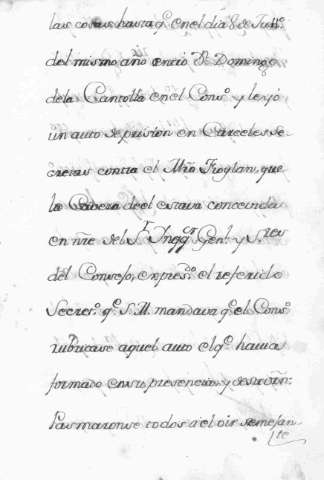 las cosas hasta q.e en el dia 8 de Jull.o
del mismo año entró D.n Domingo
de la Cantolla en el Cons.o y leyó
un auto de prision en Carceles se-
cretas contra el Mro Froylan, que
la Cavera de el estava concevida
en nre del S.r Inqq.or Gen.l y S.res
del Consejo, en pres.a el referido
Secret.o q.e S. M. mandava q.e el Cons.o
rubricase aquel auto el q.e havia
formado en su presencia, y de su orn:
Pasmaronse todos a el oir semejan-
te